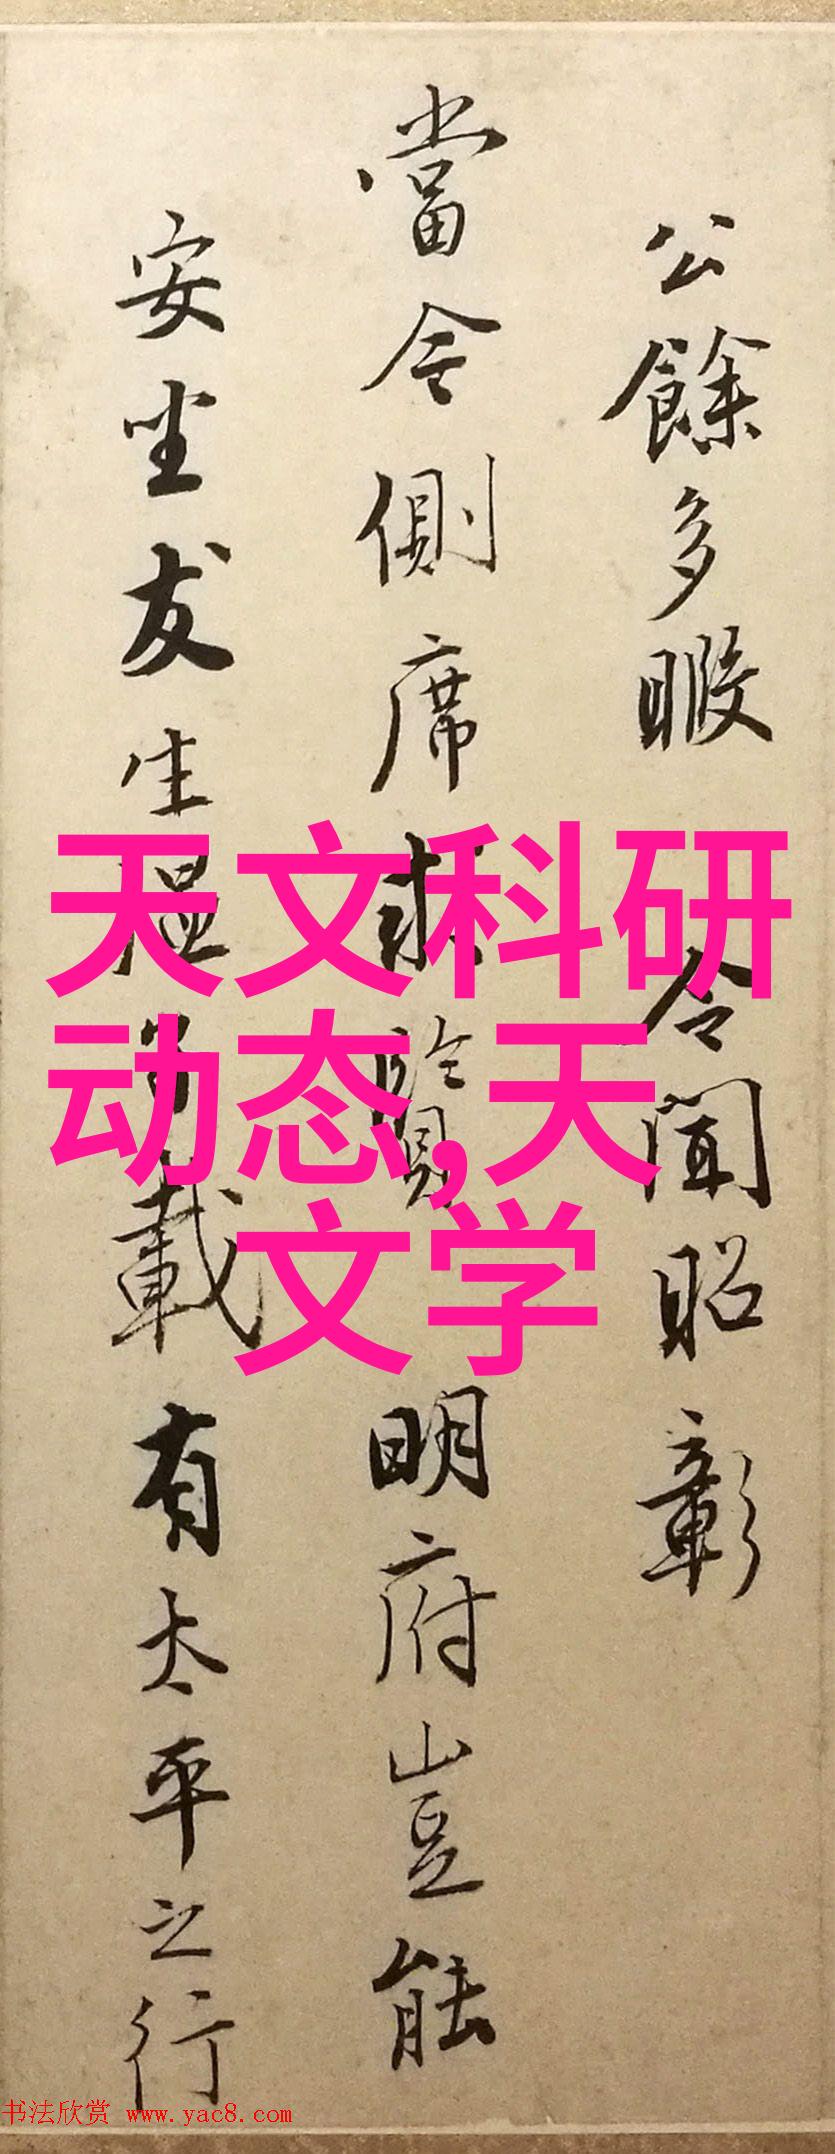 公餘多暇 令聞昭彰
當今側席求賢 明府豈能
安坐友生温子載有太平之行
天文科研
动态,天
文学
书法欣赏 www.yac8.com